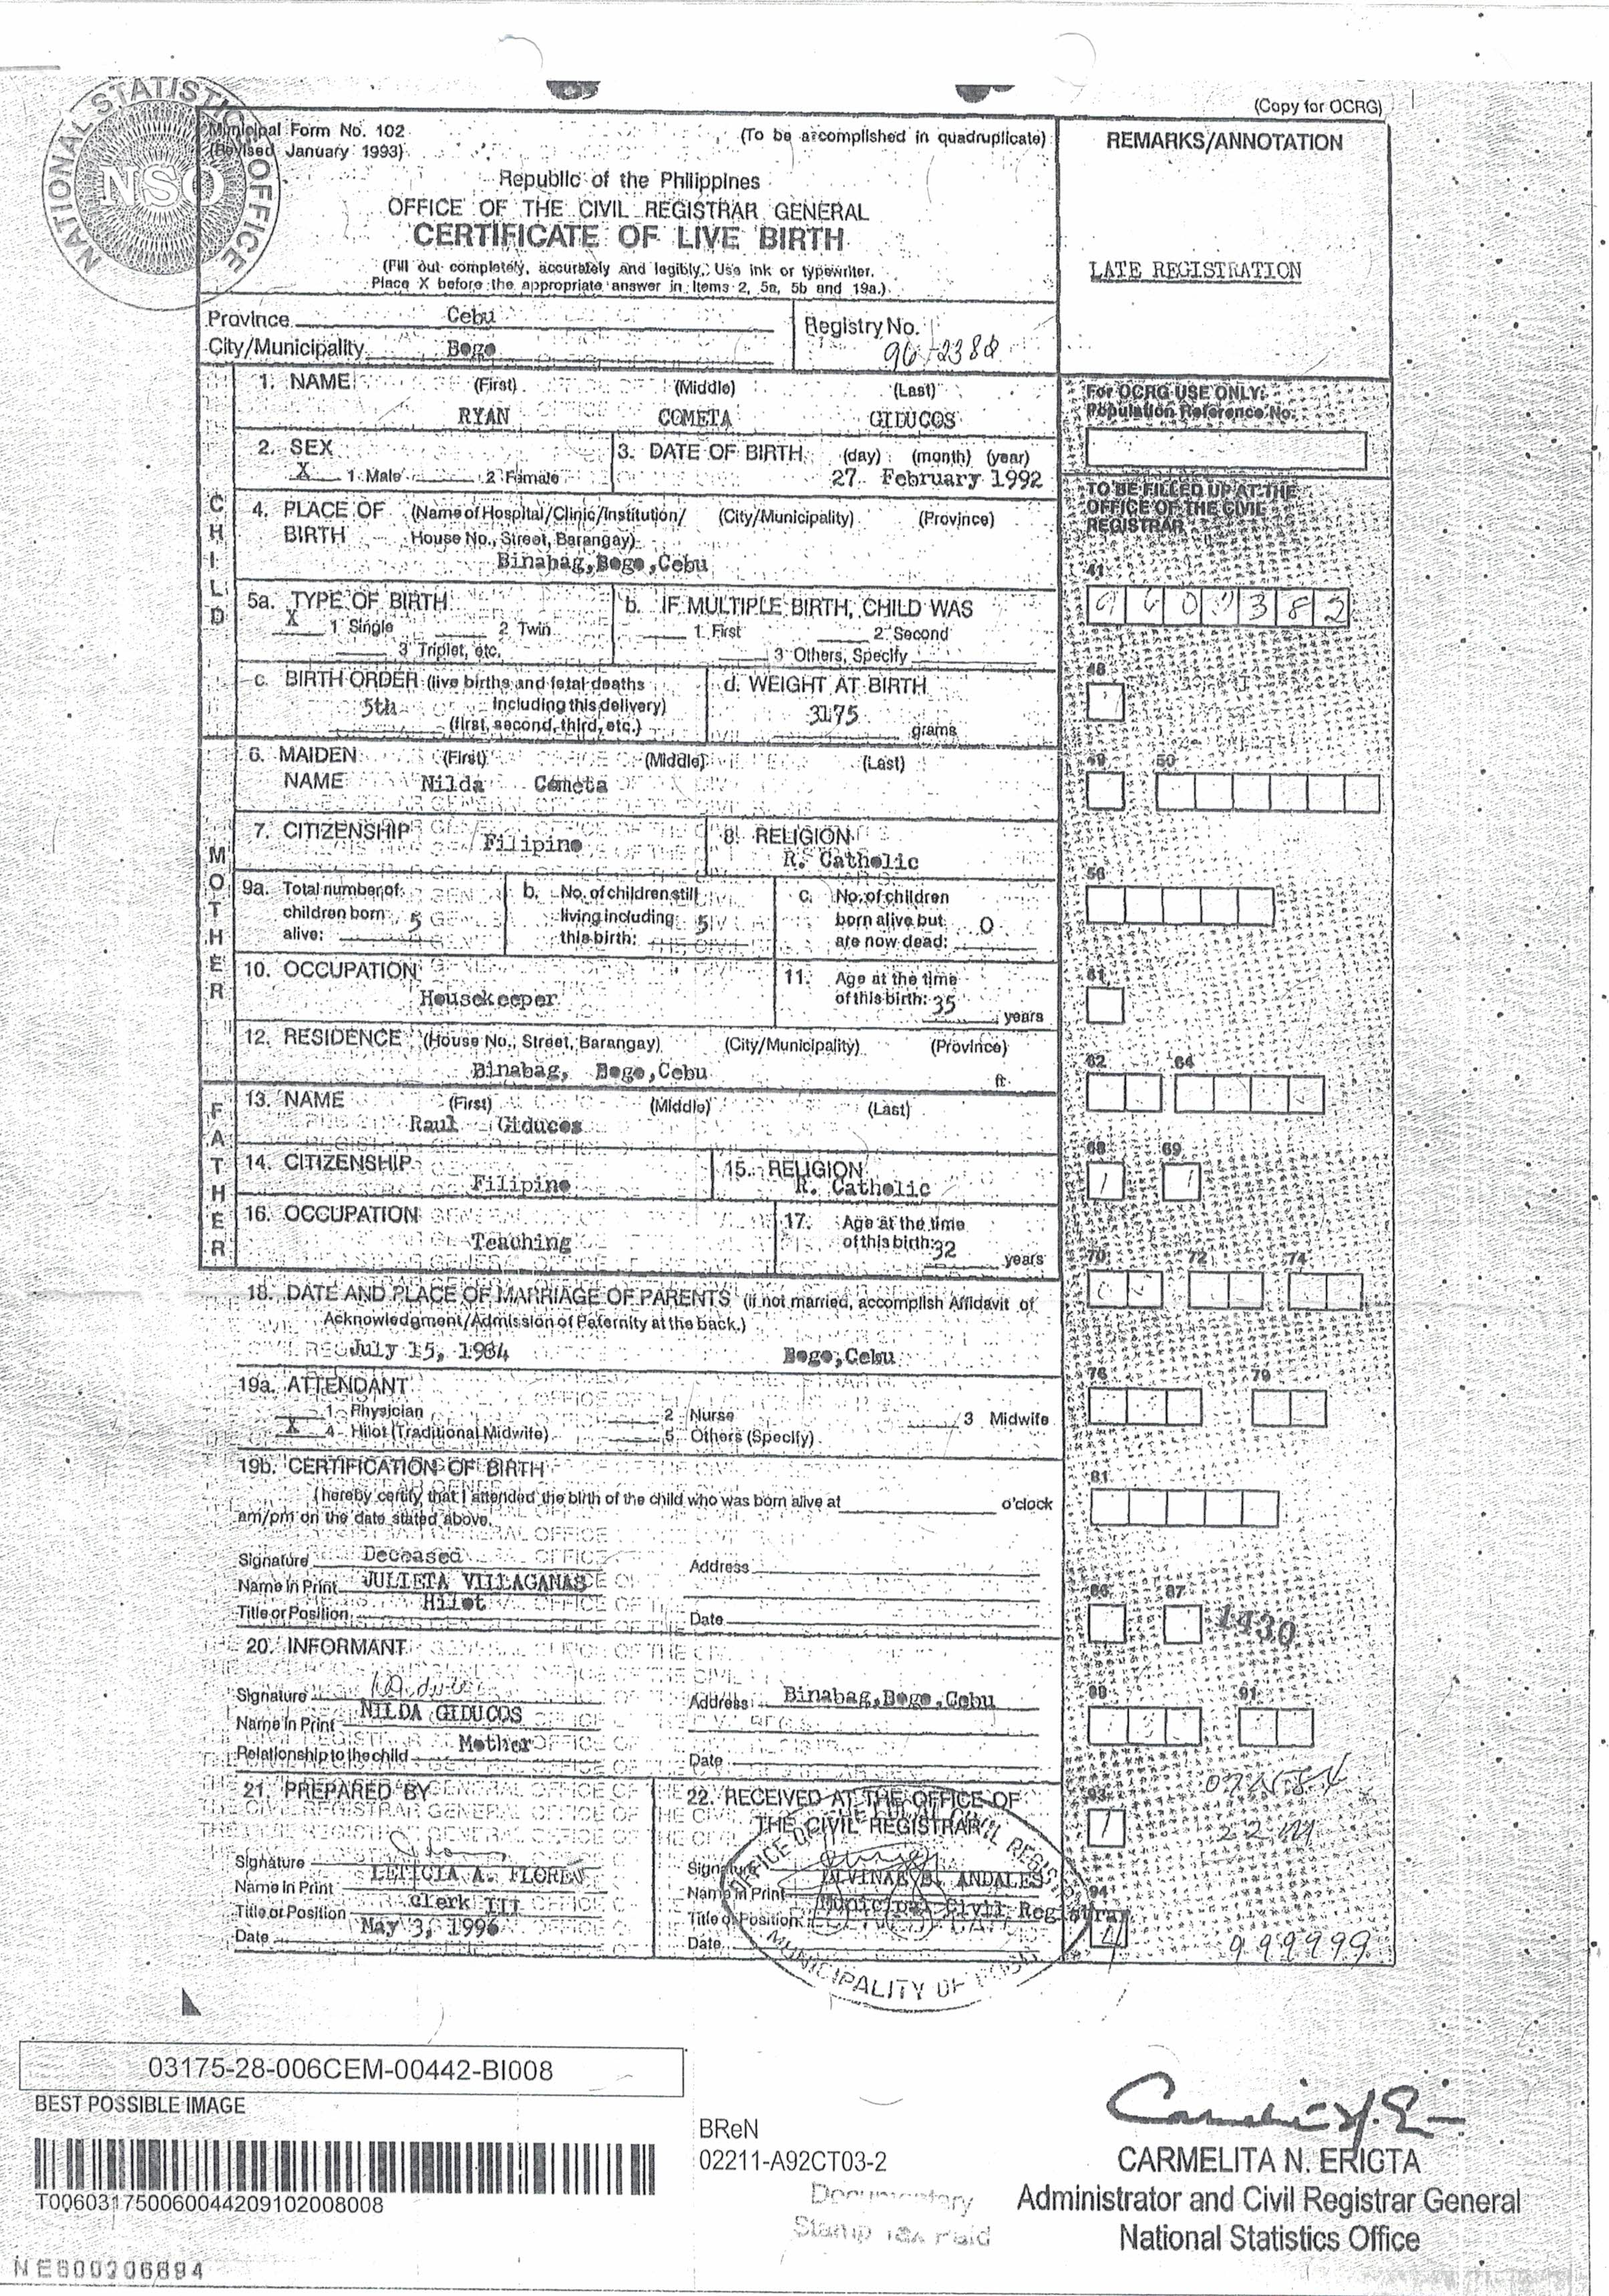 (Copy for OCRG)
NATIONAL STATISTICS OFFICE
NSO
Municipal Form No. 102
(Revised January 1993)
(To be accomplished in quadruplicate)
Republic of the Philippines
OFFICE OF THE CIVIL REGISTRAR GENERAL
CERTIFICATE OF LIVE BIRTH
(Fill out completely, accurately and legibly. Use ink or typewriter.
Place X before the appropriate answer in Items 2, 5a, 5b and 19a.)
REMARKS/ANNOTATION
LATE REGISTRATION
Province Cebu
City/Municipality Bogo
Registry No.
CHILD
1. NAME (First) (Middle) (Last)
RYAN COMETA GIDUCOS
2. SEX
X 1 Male 2 Female
3. DATE OF BIRTH (day) (month) (year)
27 February 1992
4. PLACE OF BIRTH (Name of Hospital/Clinic/Institution/ (City/Municipality) (Province)
House No., Street, Barangay)
Binabag, Bogo, Cebu
5a. TYPE OF BIRTH
X 1 Single 2 Twin
3 Triplet, etc.
b. IF MULTIPLE BIRTH, CHILD WAS
1 First 2 Second
3 Others, Specify
c. BIRTH ORDER (live births and fetal deaths
5th including this delivery)
(first, second, third, etc.)
d. WEIGHT AT BIRTH
3175 grams
MOTHER
6. MAIDEN NAME (First) (Middle) (Last)
Nilda Cometa
7. CITIZENSHIP Filipino
8. RELIGION
R. Catholic
9a. Total number of children born alive: 5
b. No. of children still living including this birth: 5
c. No. of children born alive but are now dead: 0
10. OCCUPATION
Housekeeper
11. Age at the time of this birth: 35 years
12. RESIDENCE (House No., Street, Barangay) (City/Municipality) (Province)
Binabag, Bogo, Cebu
FATHER
13. NAME (First) (Middle) (Last)
Raul Giducos
14. CITIZENSHIP
Filipino
15. RELIGION
R. Catholic
16. OCCUPATION
Teaching
17. Age at the time of this birth: 32 years
18. DATE AND PLACE OF MARRIAGE OF PARENTS (if not married, accomplish Affidavit of
Acknowledgment/Admission of Paternity at the back.)
July 15, 1984 Bogo, Cebu
19a. ATTENDANT
1 Physician 2 Nurse 3 Midwife
X 4 Hilot (Traditional Midwife) 5 Others (Specify)
19b. CERTIFICATION OF BIRTH
I hereby certify that I attended the birth of the child who was born alive at o'clock
am/pm on the date stated above.
Signature Deceased
Name in Print JULIETA VILLAGANAS
Title or Position Hilot
Address
Date
20. INFORMANT
Signature
Name in Print NILDA GIDUCOS
Relationship to the child Mother
Address Binabag, Bogo, Cebu
Date
21. PREPARED BY
Signature
Name in Print LETICIA A. FLORES
Title or Position Clerk III
Date May 3, 1996
22. RECEIVED AT THE OFFICE OF
THE CIVIL REGISTRAR
Signature
Name in Print ANDALES
Title or Position Municipal Civil Registrar
Date
For OCRG USE ONLY:
Population Reference No.
TO BE FILLED UP AT THE
OFFICE OF THE CIVIL
REGISTRAR
41
48
49 50
56
61
62 64
68 69
1 1
70 72 74
76 79
81
86 87
1430
91
93
1
94
4
999999
03175-28-006CEM-00442-BI008
BEST POSSIBLE IMAGE
T006031750060044209102008008
BReN
02211-A92CT03-2
Documentary
Stamp Tax Paid
CARMELITA N. ERICTA
Administrator and Civil Registrar General
National Statistics Office